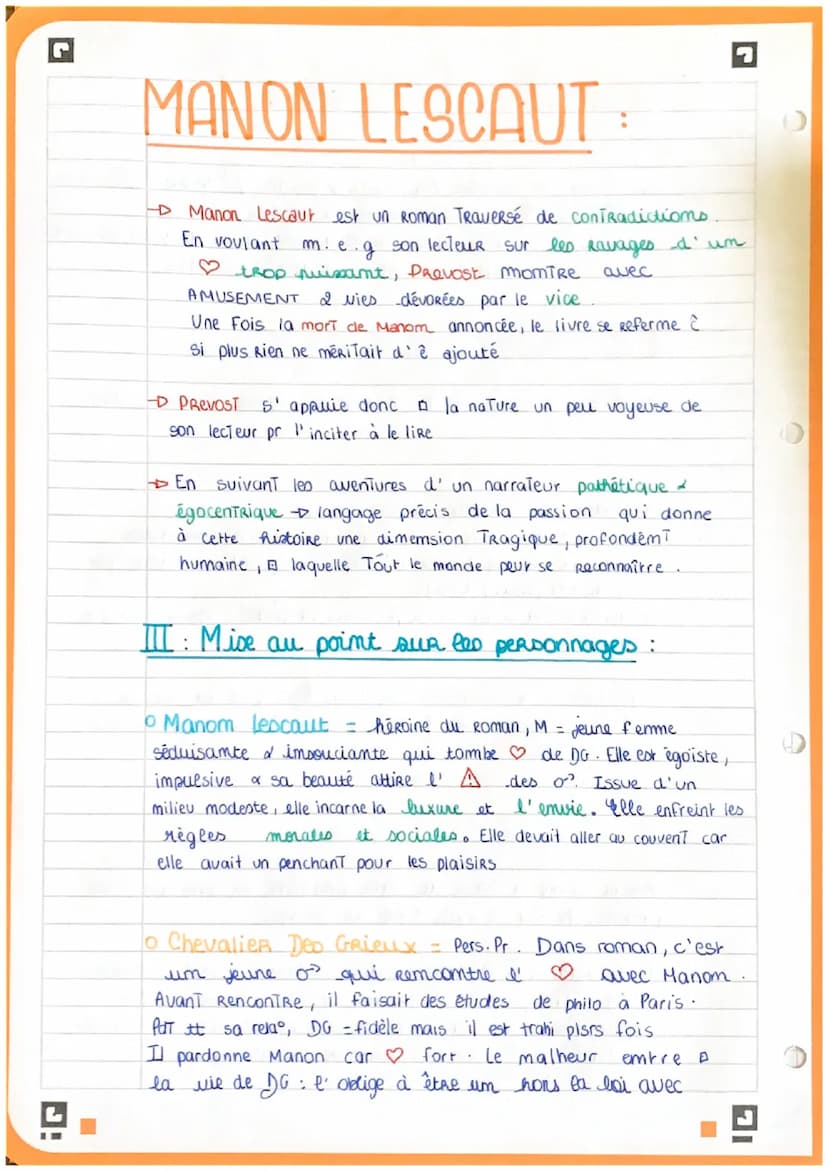 MANON LESCAUT :
→ Manon Lescaut est un roman traversé de contradictions.
En voulant m.e.g son lecteur sur les ravages d'un
♡ trop puissant, Prevost montre avec
AMUSEMENT 2 vies dévorées par le vice.
Une fois la mort de Manon annoncée, le livre se referme ĉ
si plus rien ne méritait d'ê ajouté
→ PREVOST s'appuie donc □ la nature un peu voyeuse de
son lecteur pr l'inciter à le lire
→ En suivant les aventures d'un narrateur pathétique &
égocentrique → langage précis de la passion qui donne
à cette histoire une dimension tragique, profondémT
humaine, ⊡ laquelle tout le monde peut se reconnaître.
III : Mise au point sur les personnages :
o Manon Lescaut = héroïne du roman, M = jeune femme
séduisante & insouciante qui tombe ♡ de DG. Elle est égoïste,
impulsive & sa beauté attire l' ⚠ des ♂. Issue d'un
milieu modeste, elle incarne la luxure et l'envie. Elle enfreint les
règles morales et sociales. Elle devait aller au couvent car
elle avait un penchant pour les plaisirs
o Chevalier Des Grieux = Pers. Pr. Dans roman, c'est
un jeune ♂ qui rencontre l' ♡ avec Manon.
Avant rencontre, il faisait des études de philo à Paris.
PdT tt sa rela°, DG = fidèle mais il est trahi plsrs fois
Il pardonne Manon car ♡ fort. Le malheur entre ⊡
la vie de DG : l'oblige à être un hors la loi avec